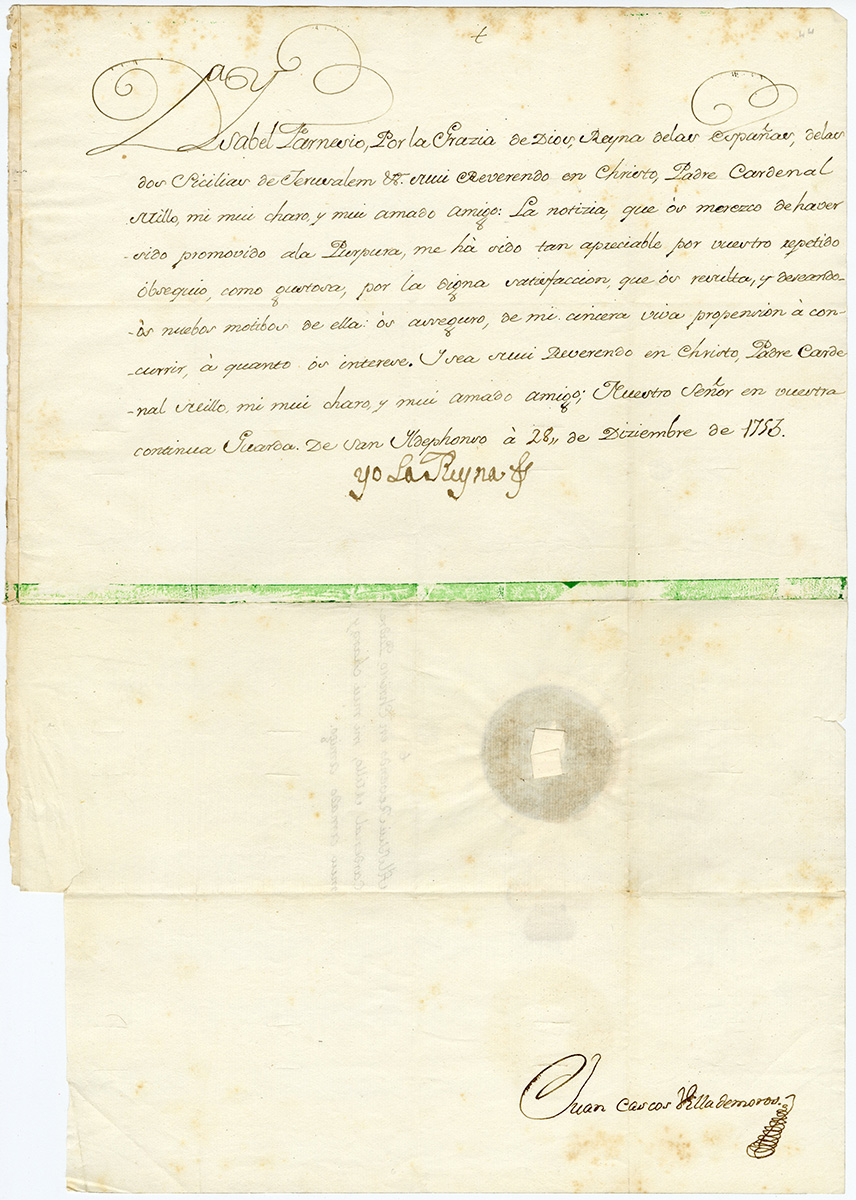 +
44
Da Ysabel Farnesio, Por la Grazia de Dios, Reyna de las Españas, de las
dos Sicilias de Jerusalem &a. Mui Reverendo en Christo, Padre Cardenal
Millo, mi mui charo, y mui amado amigo: La notizia, que ôs merezco de haver
-sido promovido ala Purpura, me hà sido tan apreciable por vuestro repetido
òbsequio, como gustosa, por la digna satisfaccion, que ôs resulta, y deseando-
-òs nuebos motibos de ella: òs asseguro, de mi cincera viva propensiòn à con-
-currir, à quanto òs interese. Y sea Mui Reverendo en Christo, Padre Carde-
-nal Millo, mi mui charo, y mui amado amigo; Nuestro Señor en vuestra
continua Guarda. De San Yldephonso à 28,, de Diziembre de 1753.
yo La Reyna
Juan Cascos Villademoros.